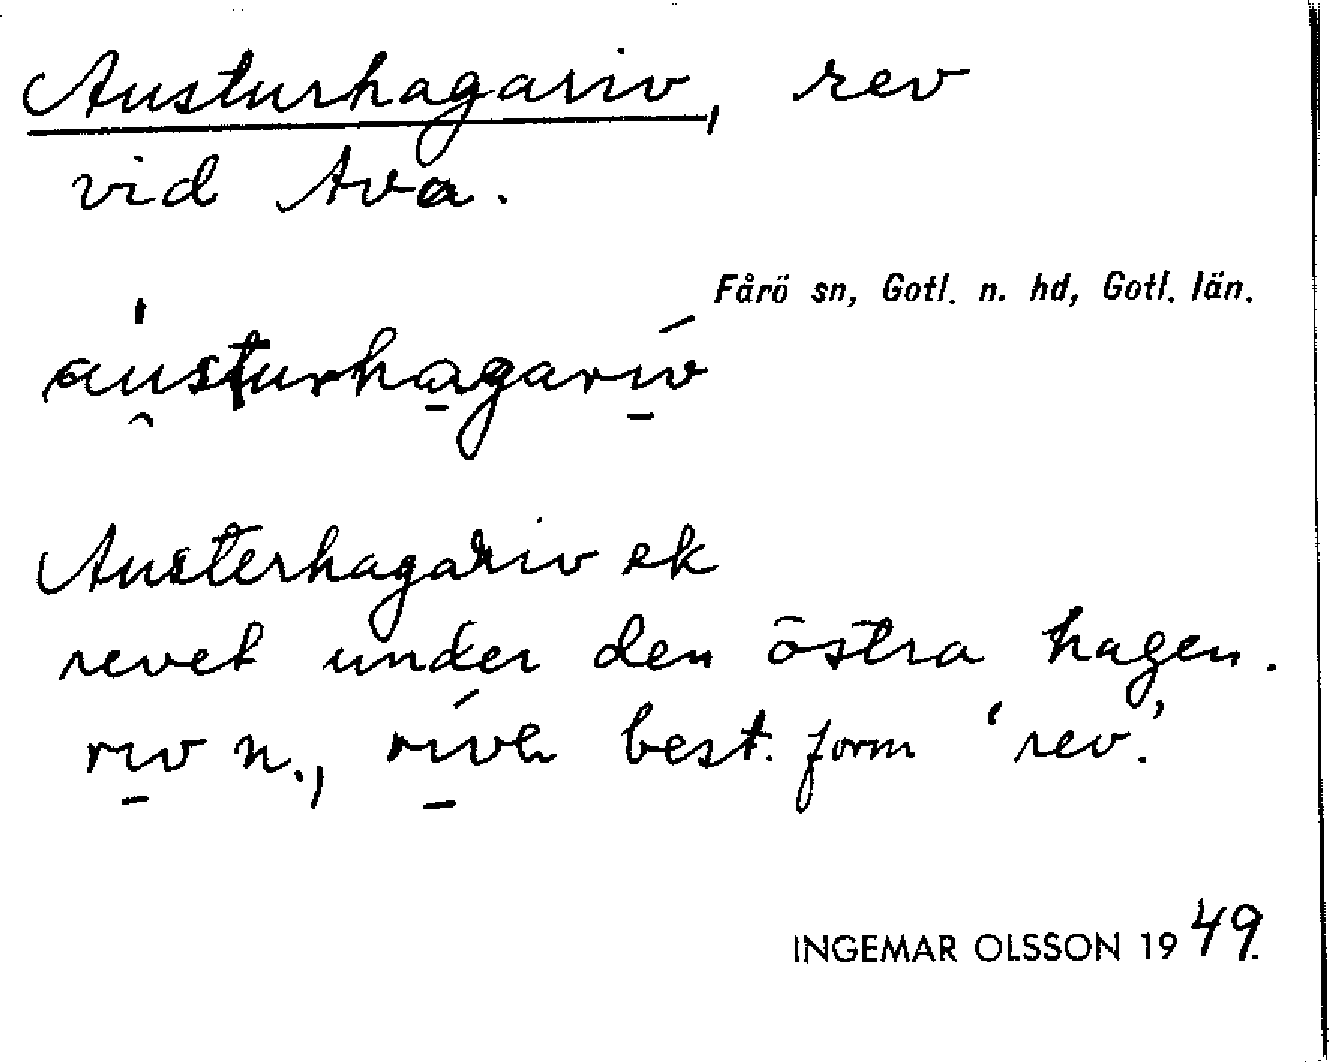 Austurhagariv, rev
vid Ava.
Fårö sn, Gotl. n. hd, Gotl. län.
austurhagarív
Austerhagariv ek
revet under den östra hagen.
rıv n., best. form ‘rev.’
INGEMAR OLSSON 1949.